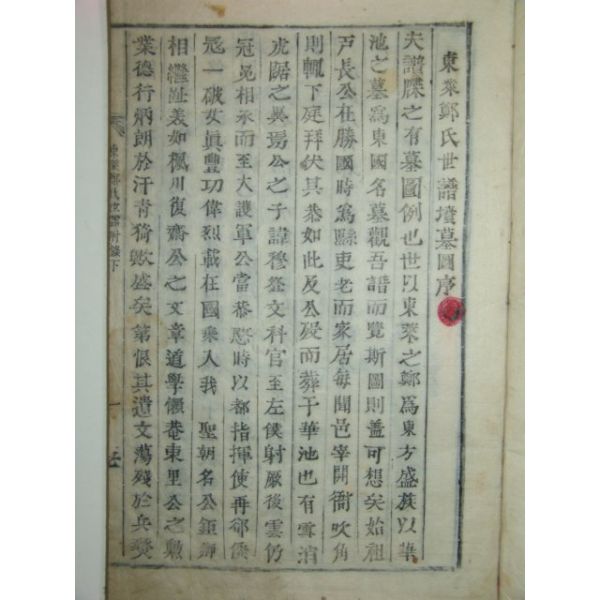 東萊鄭氏世譜墳墓圖序
夫譜牒之有墓圖例也世以東萊之鄭爲東方盛族以華
池之墓爲東國名墓觀吾譜而覽斯圖則盖可想矣始祖
戶長公在勝國時爲縣吏老而家居每聞邑宰開衙吹角
則輒下庭拜伏其恭如此及公殁而葬于華池也有雪消
虎踞之異焉公之子諱穆登文科官至左僕射厥後雲仍
冠冕相承而至大護軍公當恭愍時以都指揮使再却倭
冦一破女眞豐功偉烈載在國乘入我 聖朝名公鉅卿
相繼趾美如楓川復齋公之文章道學懶菴東里公之勳
業德行炳朗於汗青猗歟盛矣第恨其遺文蕩殘於兵燹
東萊鄭氏世譜附錄下 一